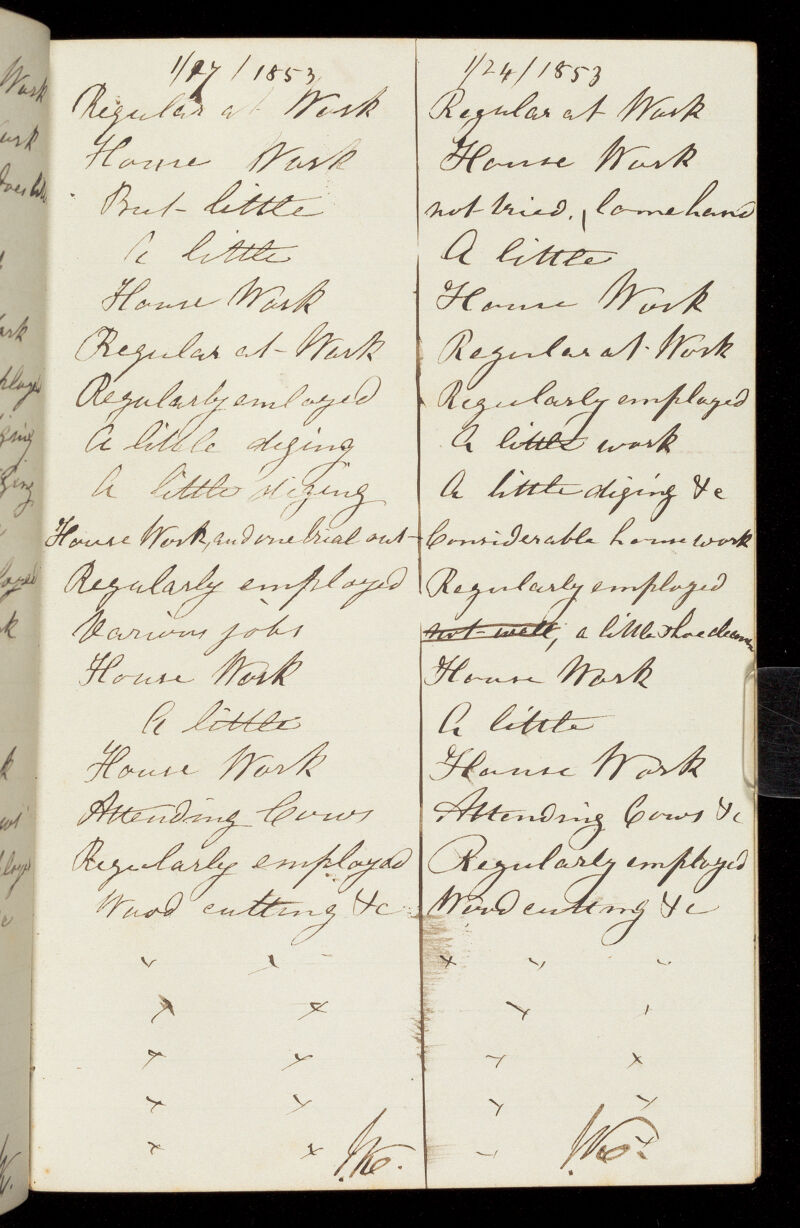 1/17/1853
Regular at Work
House Work
But little
A little
House Work
Regular at Work
Regularly emloyed
A little diging
A little diging
House Work, and one trial out
Regularly employed
Various jobs
House Work
A little
House Work
Attending Cows
Regularly employed
Wood cutting &c
1/24/1853
Regular at Work
House Work
not tried, lame hand
A little
House Work
Regular at Work
Regularly employed
A little work
A little diging &c
Considerable house work
Regularly employed
not well, a little shoe
House Work
A little
House Work
Attending Cows &c
Regularly employed
Wood cutting &c